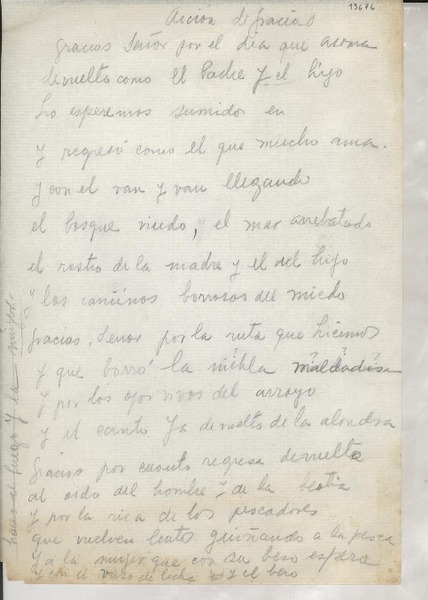 13676
Accion de gracias
Gracias Señor por el dia que asoma
devuelto como el Padre y el hijo
Lo esperemos sumidos en
y regresó como el que mucho ama.
y con el van y van llegando
el bosque viudo, el mar arrebatado
el rostro de la madre y el del hijo
y los caminos borrosos del miedo
Gracias, Señor por la ruta que hicimos
y que borró la niebla maldadosa
y por los ojos vivos del arroyo
y el canto ya devuelto de la alondra
Gracias por cuanto regresa devuelto
al oido del hombre y de la bestia
y por la risa de los pescadores
que vuelven lentos guiñando a la pesca
y a la mujer que con su beso espera
y con el vaso de leche y el beso
fuego y la mujer